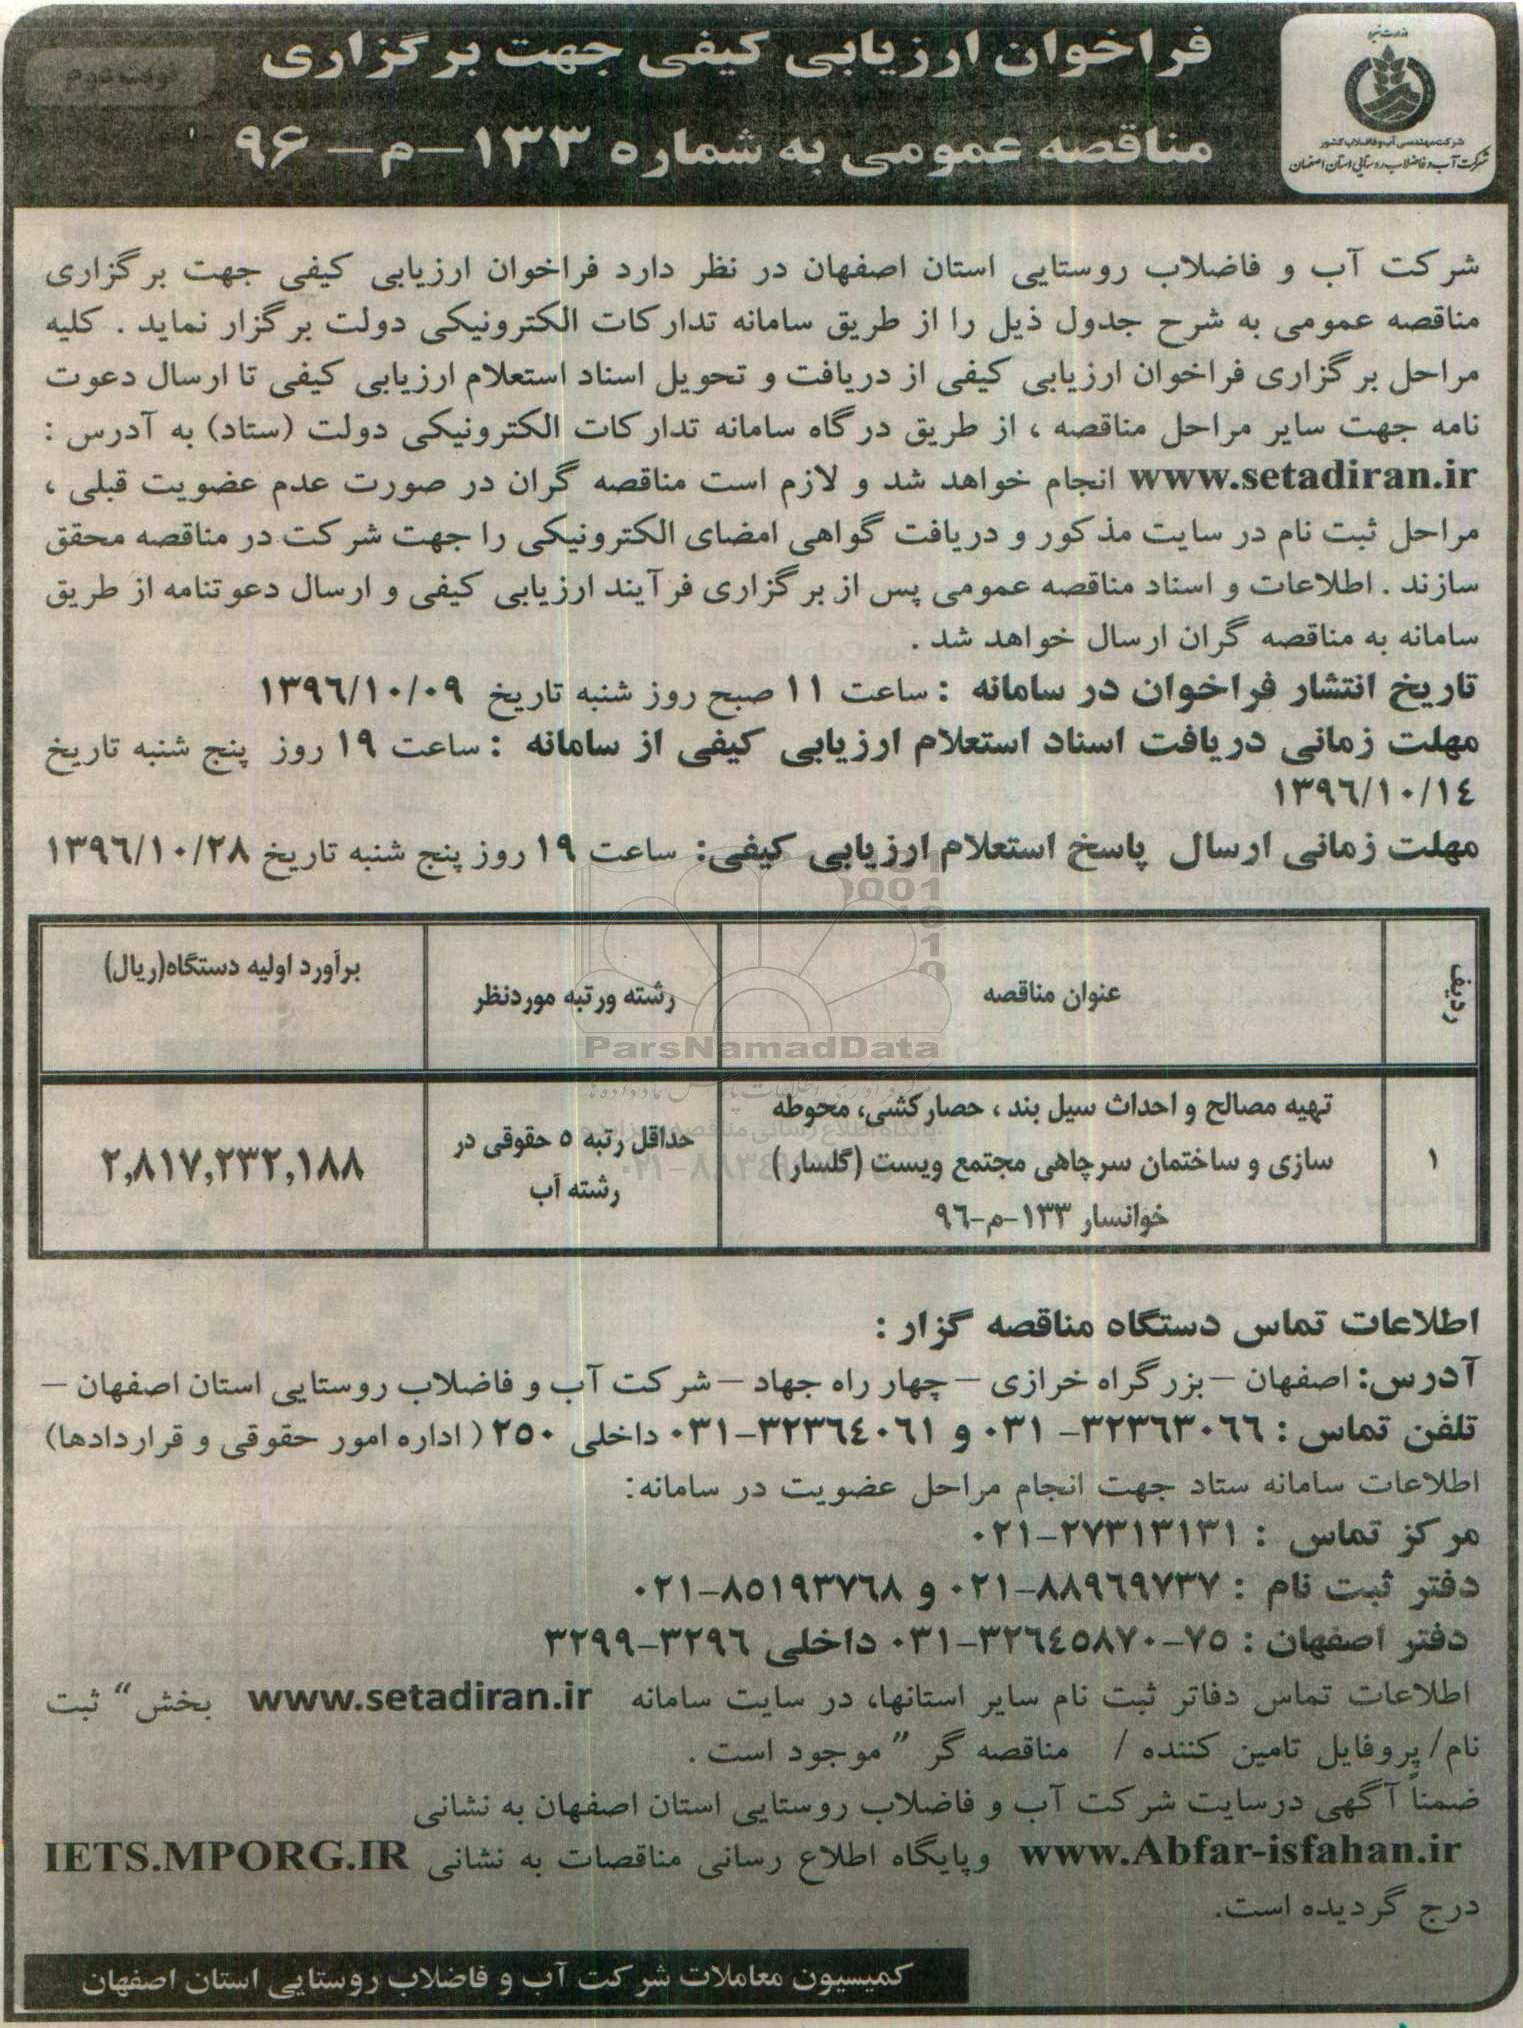 فراخوان ارزیابی کیفی جهت برگزاری
نوبت دوم
مناقصه عمومی به شماره ۱۳۳-م-۹۶
شرکت مهندسی آب و فاضلاب کشور
شرکت آب و فاضلاب روستایی استان اصفهان
شرکت آب و فاضلاب روستایی استان اصفهان در نظر دارد فراخوان ارزیابی کیفی جهت برگزاری
مناقصه عمومی به شرح جدول ذیل را از طریق سامانه تدارکات الکترونیکی دولت برگزار نماید . کلیه
مراحل برگزاری فراخوان ارزیابی کیفی از دریافت و تحویل اسناد استعلام ارزیابی کیفی تا ارسال دعوت
نامه جهت سایر مراحل مناقصه ، از طریق درگاه سامانه تدارکات الکترونیکی دولت (ستاد) به آدرس :
www.setadiran.ir انجام خواهد شد و لازم است مناقصه گران در صورت عدم عضویت قبلی ،
مراحل ثبت نام در سایت مذکور و دریافت گواهی امضای الکترونیکی را جهت شرکت در مناقصه محقق
سازند . اطلاعات و اسناد مناقصه عمومی پس از برگزاری فرآیند ارزیابی کیفی و ارسال دعوتنامه از طریق
سامانه به مناقصه گران ارسال خواهد شد .
تاریخ انتشار فراخوان در سامانه : ساعت ۱۱ صبح روز شنبه تاریخ ۱۳۹۶/۱۰/۰۹
مهلت زمانی دریافت اسناد استعلام ارزیابی کیفی از سامانه : ساعت ۱۹ روز پنج شنبه تاریخ
۱۳۹۶/۱۰/۱۴
مهلت زمانی ارسال پاسخ استعلام ارزیابی کیفی: ساعت ۱۹ روز پنج شنبه تاریخ ۱۳۹۶/۱۰/۲۸
ردیف
عنوان مناقصه
رشته ورتبه موردنظر
برآورد اولیه دستگاه(ریال)
۱
تهیه مصالح و احداث سیل بند ، حصارکشی، محوطه
سازی و ساختمان سرچاهی مجتمع ویست (گلسار )
خوانسار ۱۳۳-م-۹۶
حداقل رتبه ۵ حقوقی در
رشته آب
۲,۸۱۷,۲۳۲,۱۸۸
ParsNamadData
اطلاعات تماس دستگاه مناقصه گزار :
آدرس: اصفهان – بزرگراه خرازی – چهار راه جهاد – شرکت آب و فاضلاب روستایی استان اصفهان –
تلفن تماس : ۳۲۳۶۳۰۶۶- ۰۳۱ و ۳۲۳۶۴۰۶۱-۰۳۱ داخلی ۲۵۰ ( اداره امور حقوقی و قراردادها)
اطلاعات سامانه ستاد جهت انجام مراحل عضویت در سامانه:
مرکز تماس : ۲۷۳۱۳۱۳۱-۰۲۱
دفتر ثبت نام : ۸۸۹۶۹۷۳۷-۰۲۱ و ۸۵۱۹۳۷۶۸-۰۲۱
دفتر اصفهان : ۷۵-۳۲۶۴۵۸۷۰-۰۳۱ داخلی ۳۲۹۶-۳۲۹۹
اطلاعات تماس دفاتر ثبت نام سایر استانها، در سایت سامانه www.setadiran.ir بخش “ ثبت
نام/ پروفایل تامین کننده / مناقصه گر ” موجود است .
ضمناً آگهی درسایت شرکت آب و فاضلاب روستایی استان اصفهان به نشانی
www.Abfar-isfahan.ir وپایگاه اطلاع رسانی مناقصات به نشانی IETS.MPORG.IR
درج گردیده است.
کمیسیون معاملات شرکت آب و فاضلاب روستایی استان اصفهان